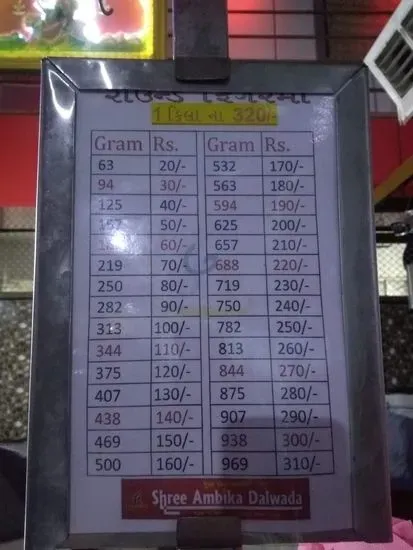 1 કિલો ના 320/-
Gram Rs. Gram Rs.
63 20/- 532 170/-
94 30/- 563 180/-
125 40/- 594 190/-
157 50/- 625 200/-
60/- 657 210/-
219 70/- 688 220/-
250 80/- 719 230/-
282 90/- 750 240/-
313 100/- 782 250/-
344 110/- 813 260/-
375 120/- 844 270/-
407 130/- 875 280/-
438 140/- 907 290/-
469 150/- 938 300/-
500 160/- 969 310/-
Shree Ambika Dalwada